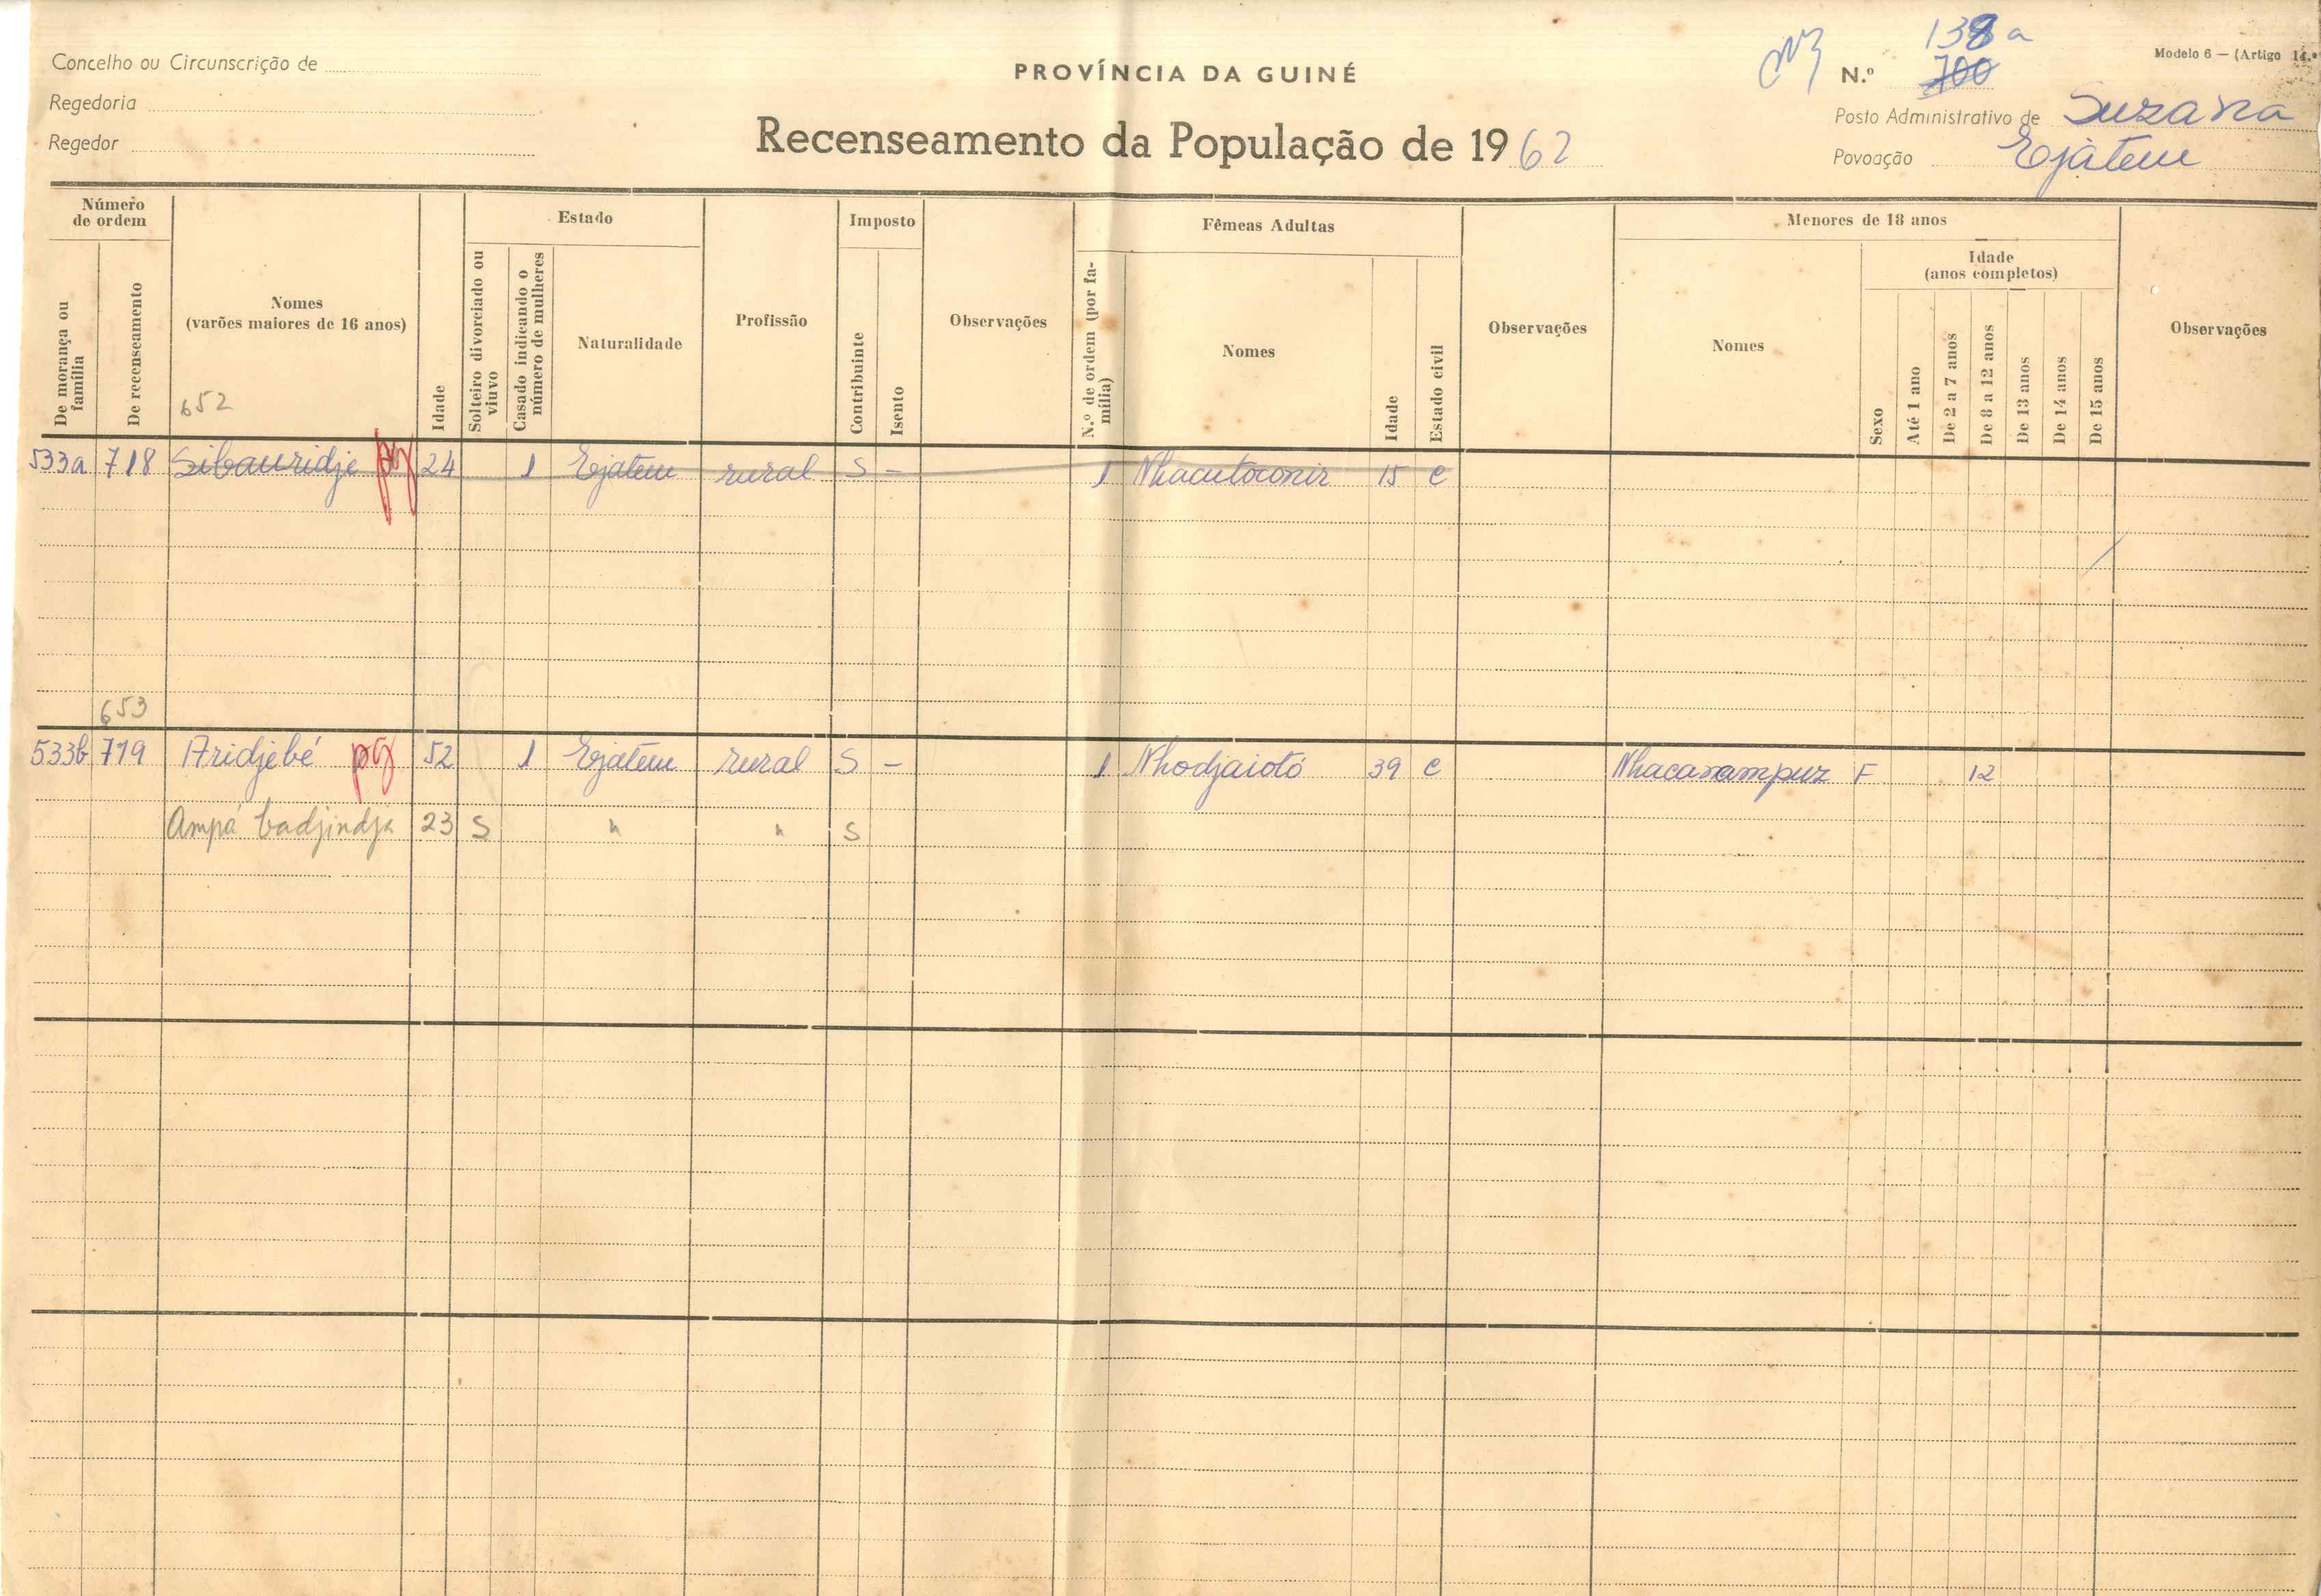 Concelho ou Circunscrição de
Regedoria
Regedor
PROVÍNCIA DA GUINÉ
Recenseamento da População de 1962
138a
N.º 700
Modelo 6 — (Artigo 14.º
Posto Administrativo de Suzana
Povoação Ejatem
Número de ordem
De morança ou família
De recenseamento
Nomes
(varões maiores de 16 anos)
652
Idade
Estado
Solteiro divorciado ou viuvo
Casado indicando o número de mulheres
Naturalidade
Profissão
Imposto
Contribuinte
Isento
Observações
Fêmeas Adultas
N.º de ordem (por família)
Nomes
Idade
Estado civil
Observações
Menores de 18 anos
Nomes
Sexo
Idade
(anos completos)
Até 1 ano
De 2 a 7 anos
De 8 a 12 anos
De 13 anos
De 14 anos
De 15 anos
Observações
533a 718 Sibauridje pg 24 1 Ejatem rural S – 1 Nhacutoconir 15 C
653
533b 719 Aridjebé pg 52 1 Ejatem rural S – 1 Nhodjaiotó 39 C Nhacarampuz F 12
Ampá badjindja 23 S " " S